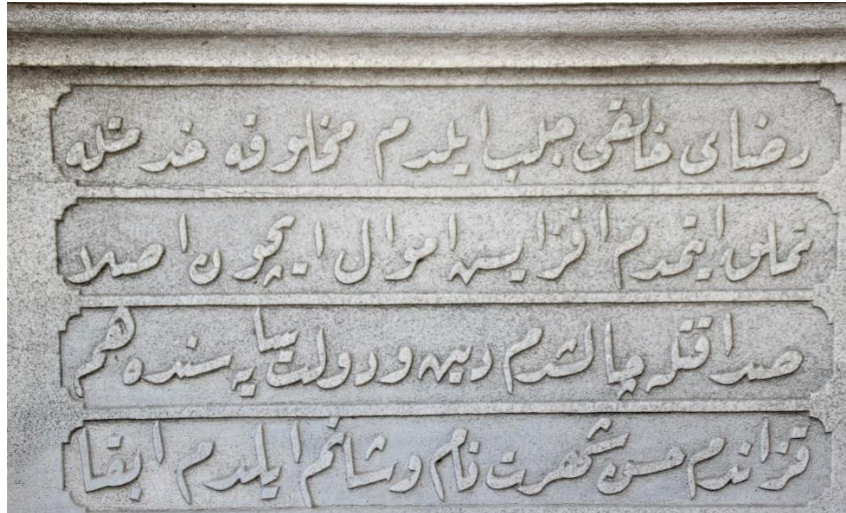 رضای خالقی جلب ایلدم مخلوقه خدمتله
تملق ایتمدم افزایش اموال ایچون اصلا
صداقتله چالشدم دین و دولت سایه‌سنده هم
قزاندم حسن شهرت نام و شانم ایلدم ابقا